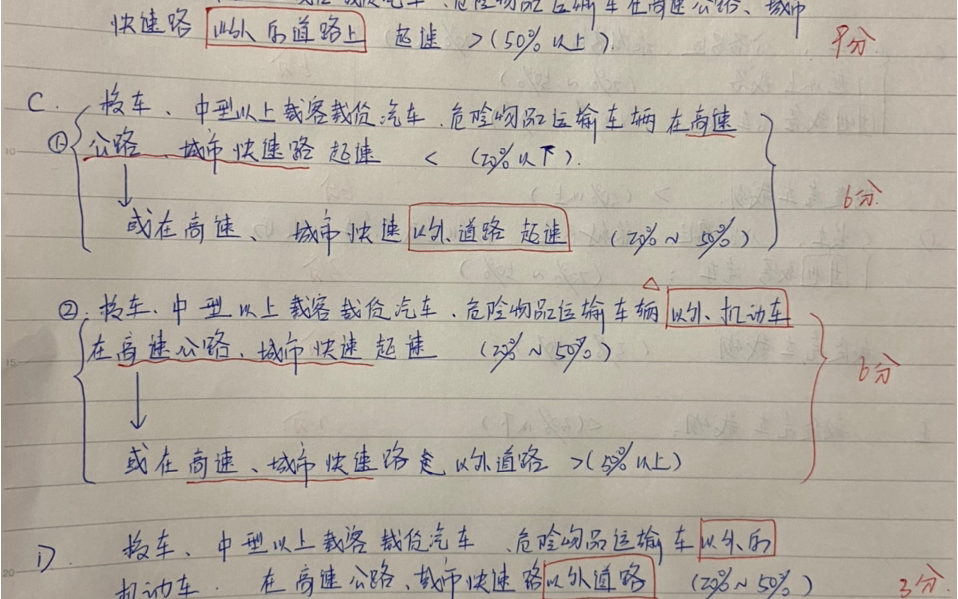 危险物品运输车在高速公路、城市
快速路 以外的道路上 超速 >(50%以上). 9分.
C. ① 校车、中型以上载客载货汽车、危险物品运输车辆在高速
公路、城市快速路 超速 < (20%以下).
或在高速、城市快速以外道路超速 (20%~50%) 6分.
② 校车、中型以上载客载货汽车、危险物品运输车辆以外、机动车
在高速公路、城市快速 超速 (20%~50%) 6分
或在高速、城市快速路 以外道路 >(50%以上)
D 校车、中型以上载客 载货汽车 、危险物品运输车以外的
机动车. 在高速公路、城市快速路以外道路 (20%~50%) 3分.